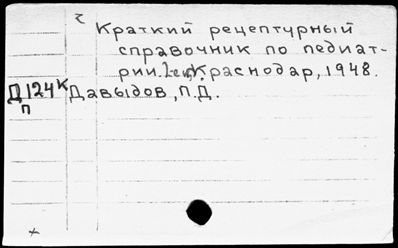 Краткий рецептурный
справочник по педиат-
рии. Краснодар, 1948.
Д124к Давыдов, П.Д.
П